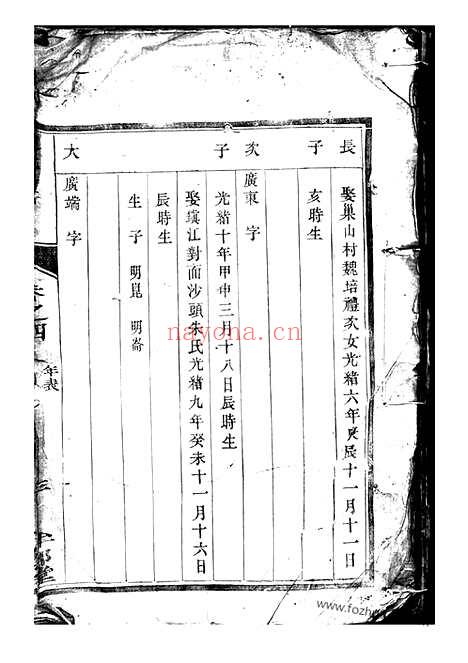 長子
娶巢山村魏培禮次女光緒六年庚辰十一月十一日
亥時生
次子
廣東 字
光緒十年甲申三月十八日辰時生
娶鎮江對面沙頭朱氏光緒九年癸未十一月十六日
辰時生
生子 明崑 明崙
大
廣端 字
年表
三
nayona.cn
www.fozhu